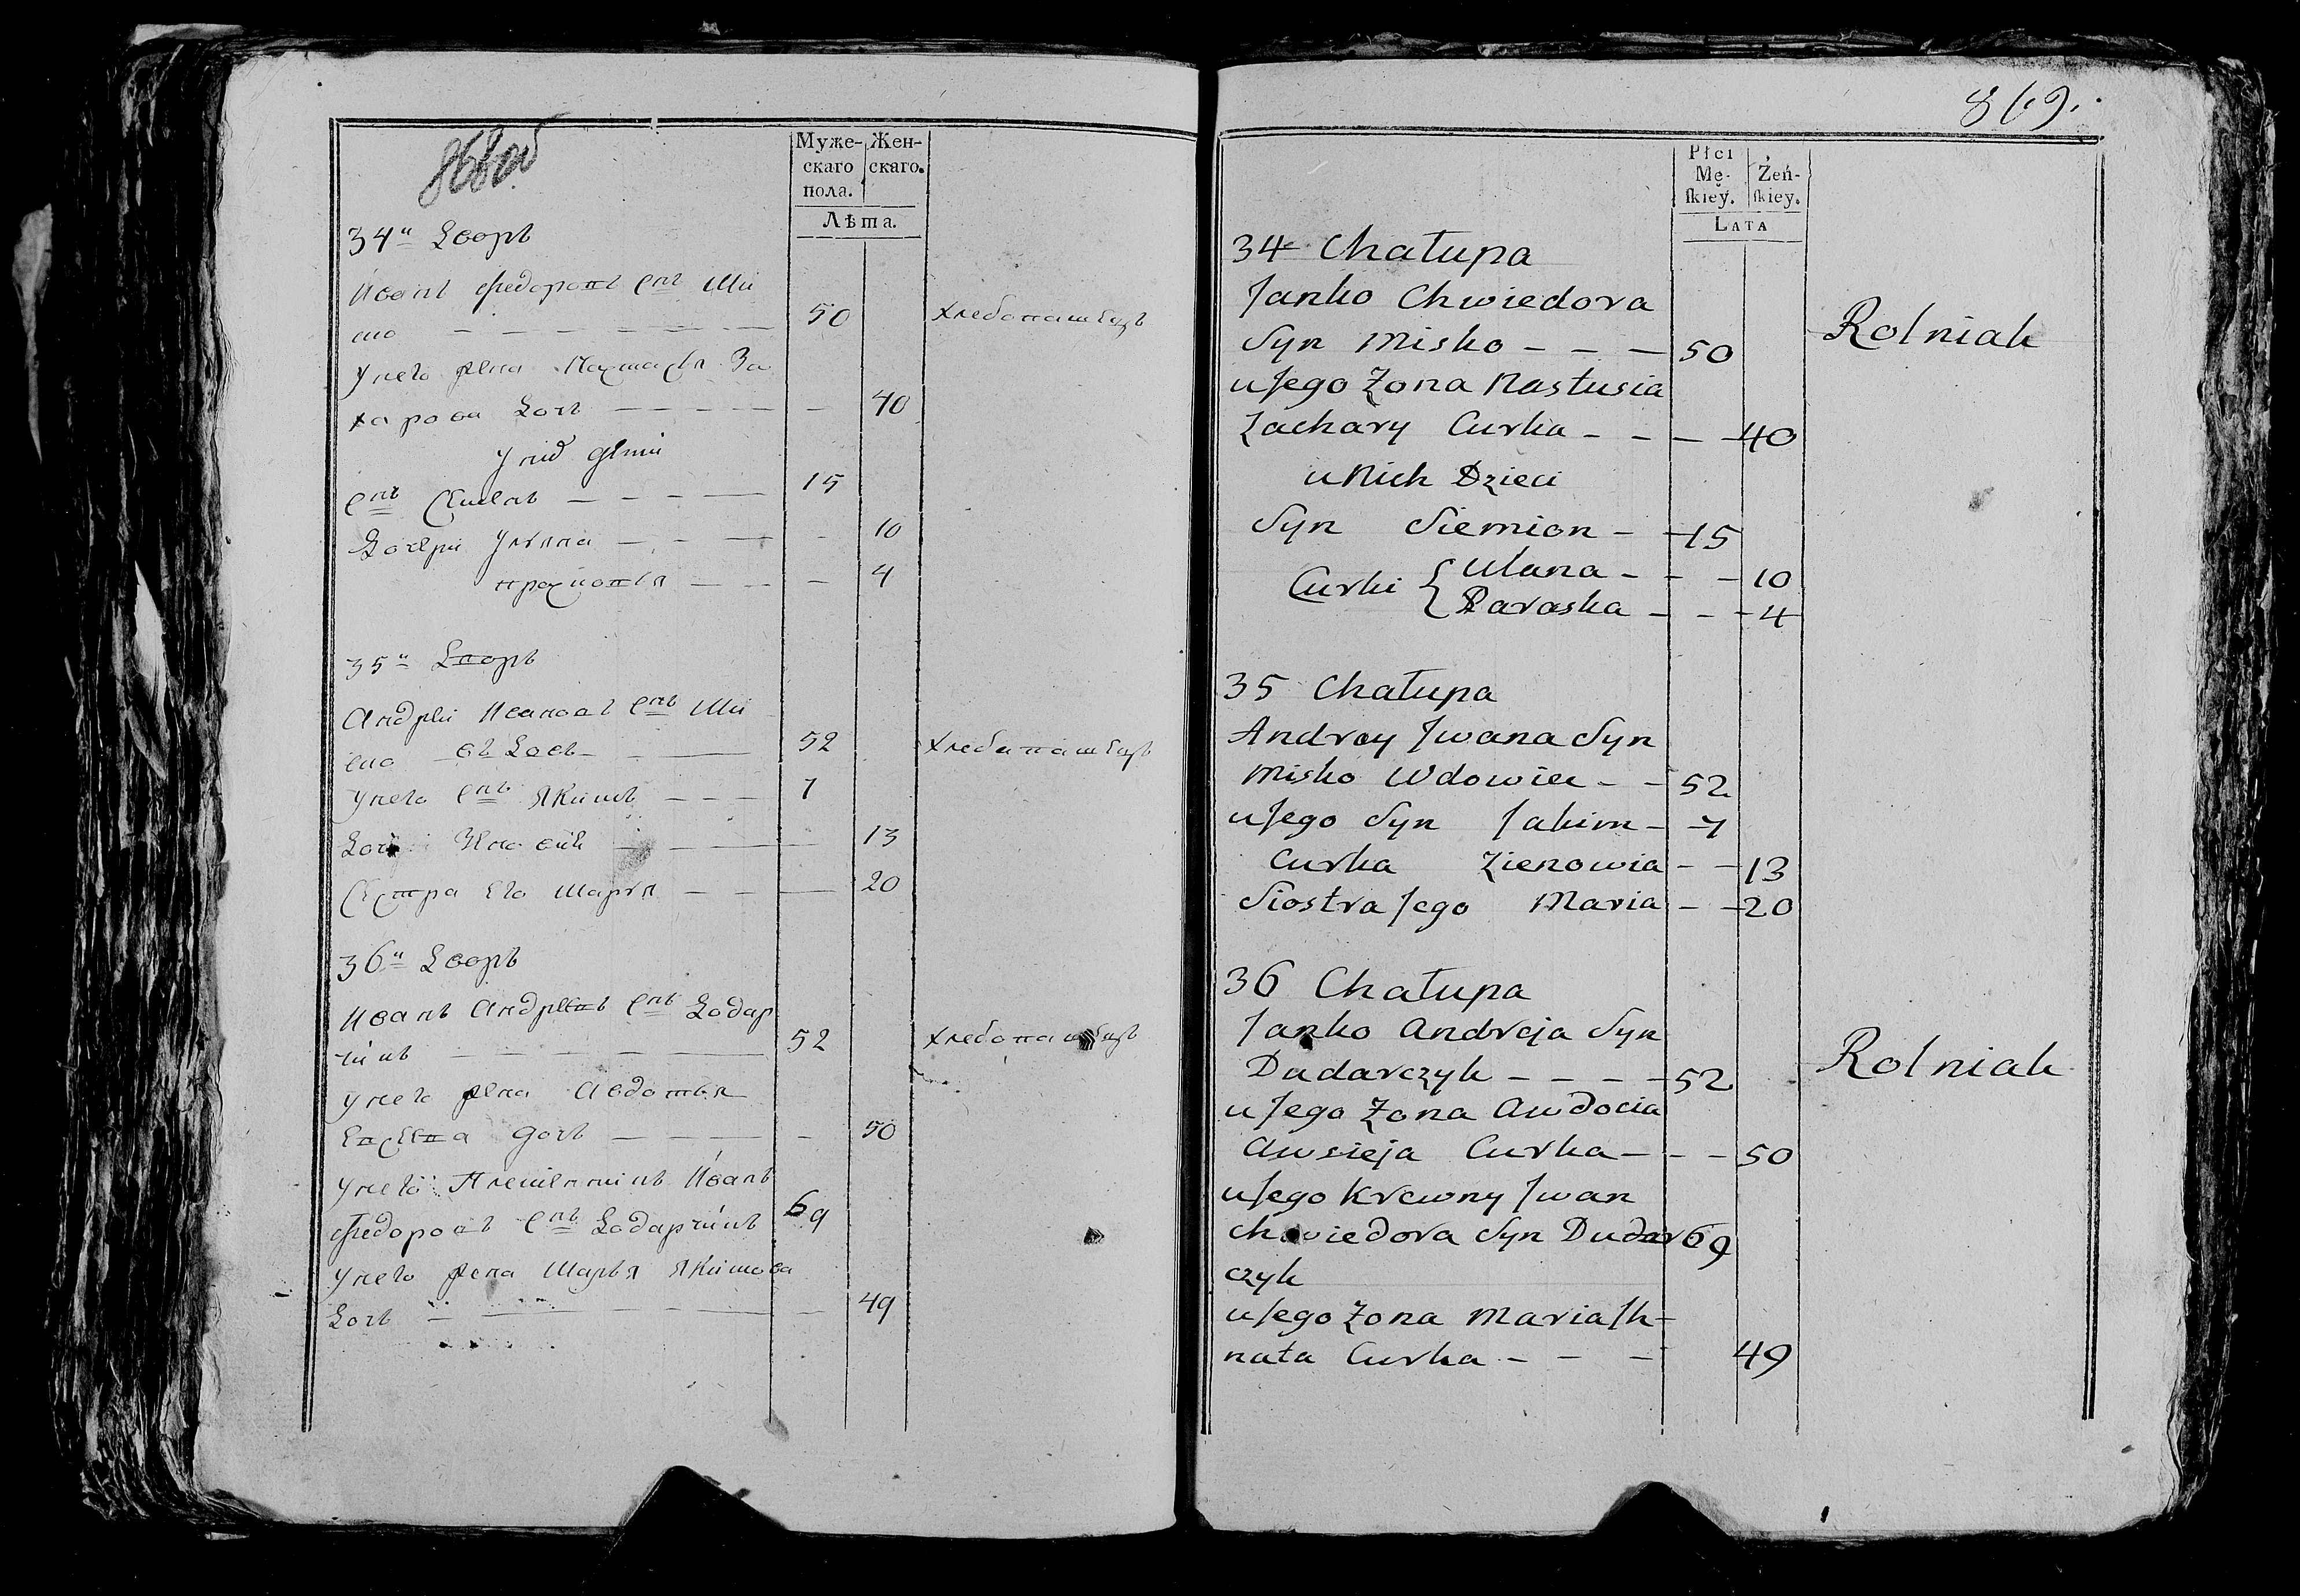 868 об
Муже-
скаго
пола.
Жен-
скаго.
Лѣта.
34й Дворъ
Иванъ Федоровъ снъ Ми
ско — — — 50 хлебопашецъ
У него жена Настасья За
харова дочь — — — 40
У них дети
снъ Семенъ — — — 15
Дочери Ульяна — — — 10
Прасковья — — — 4
35й Дворъ
Андрей Ивановъ снъ Ми
ско — вдовъ — 52 хлебопашецъ
У него снъ Якимъ — — — 7
Дочь Зиновия — — — 13
Сестра его Марья — — — 20
36й Дворъ
Иванъ Андреевъ снъ Додар
чикъ — — — 52 хлебопашецъ
У него жена Авдотья
Евсеева дочь — — — 50
У него племянникъ Иванъ
Федоровъ снъ Додарчикъ 69
У него жена Марья Якимова
дочь — — — 49
869.
Płci
Mę-
skiey.
Żeń-
skiey.
LATA
34 Chałupa
Janko Chwiedora
Syn Misko — — — 50 Rolniak
u Jego Żona Nastusia
Zachary Curka — — — 40
u Nich Dzieci
Syn Siemion — — 15
Curki { Ulana — — — 10
Paraska — — — 4
35 Chałupa
Andrey Jwana Syn
Misko Wdowiec — — 52
u Jego Syn Jakim — 7
Curka Zienowia — — 13
Siostra Jego Maria — — 20
36 Chałupa
Janko Andreja Syn
Dudarczyk — — — — 52 Rolniak
u Jego Żona Awdocia
Awsieja Curka — — — 50
u Jego Krewny Jwan
Chwiedora Syn Dudar 69
czyk
u Jego Żona Maria Jh-
nata Curka — — — 49